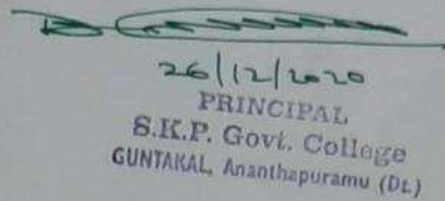 26/12/2020
PRINCIPAL
S.K.P. Govt. College
GUNTAKAL, Ananthapuramu (Dt.)